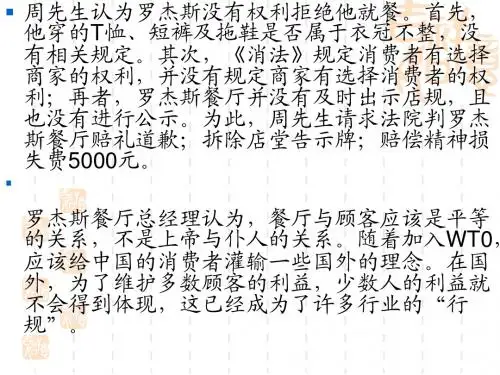 周先生认为罗杰斯没有权利拒绝他就餐。首先，
他穿的T恤、短裤及拖鞋是否属于衣冠不整，没
有相关规定。其次，《消法》规定消费者有选择
商家的权利，并没有规定商家有选择消费者的权
利；再者，罗杰斯餐厅并没有及时出示店规，且
也没有进行公示。为此，周先生请求法院判罗杰
斯餐厅赔礼道歉；拆除店堂告示牌；赔偿精神损
失费5000元。
罗杰斯餐厅总经理认为，餐厅与顾客应该是平等
的关系，不是上帝与仆人的关系。随着加入WTO，
应该给中国的消费者灌输一些国外的理念。在国
外，为了维护多数顾客的利益，少数人的利益就
不会得到体现，这已经成为了许多行业的“行
规”。